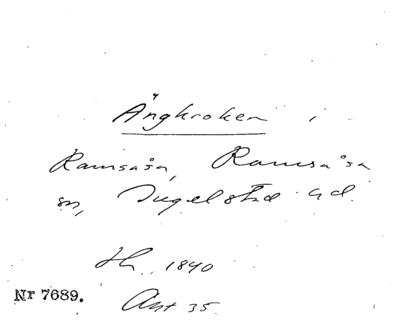 Ängkroken i
Ramsåsa, Ramsåsa
sn, Ingelstad hd.
Hs. 1840
Nr 7689. Akt 35.